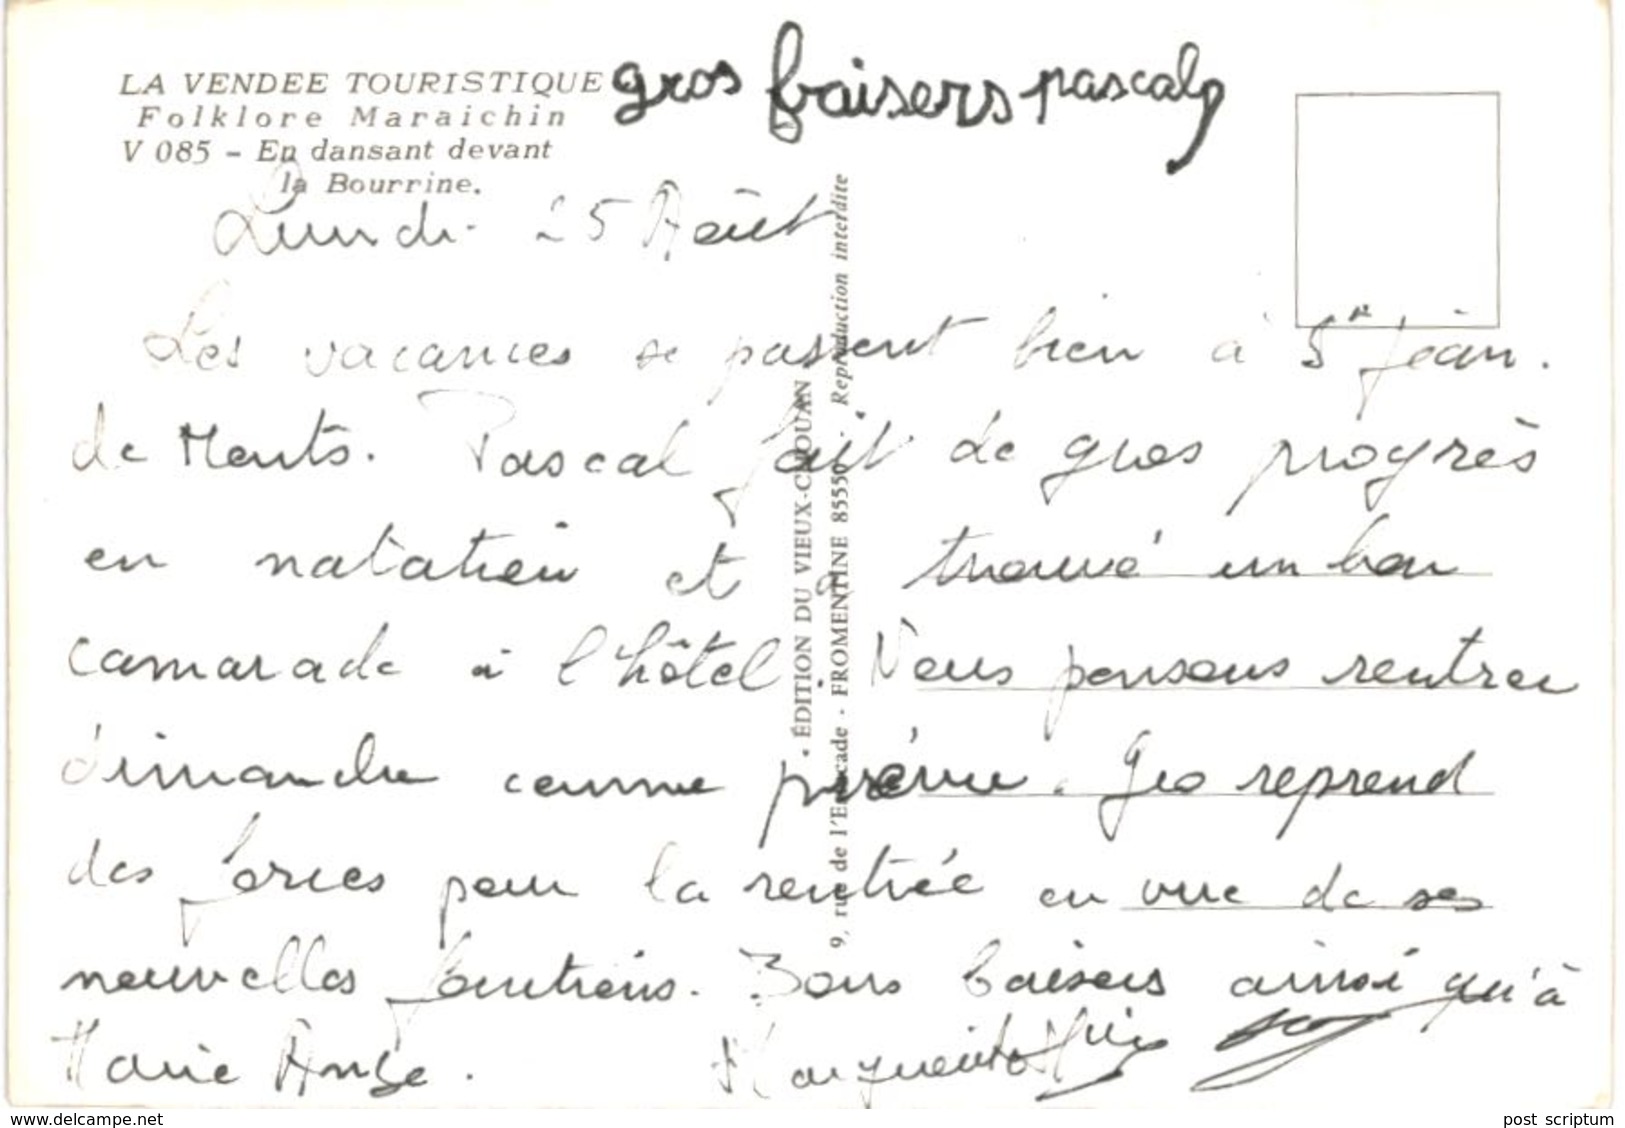 LA VENDEE TOURISTIQUE
Folklore Maraichin
V 085 - En dansant devant
la Bourrine.
gros baisers pascal
Lundi 25 Août
Les vacances se passent bien à St Jean.
de Monts. Pascal fait de gros progrès
en natation et a trouvé un bon
camarade à l'hôtel. Nous pensons rentrer
dimanche comme prévu. Geo reprend
des forces pour la rentrée en vue de ses
nouvelles fonctions. Bons baisers ainsi qu'à
Marie Ange.
Marguerite
• ÉDITION DU VIEUX-CHOUAN
9, rue de l'Estacade - FROMENTINE 85550 - Reproduction interdite
post scriptum
www.delcampe.net